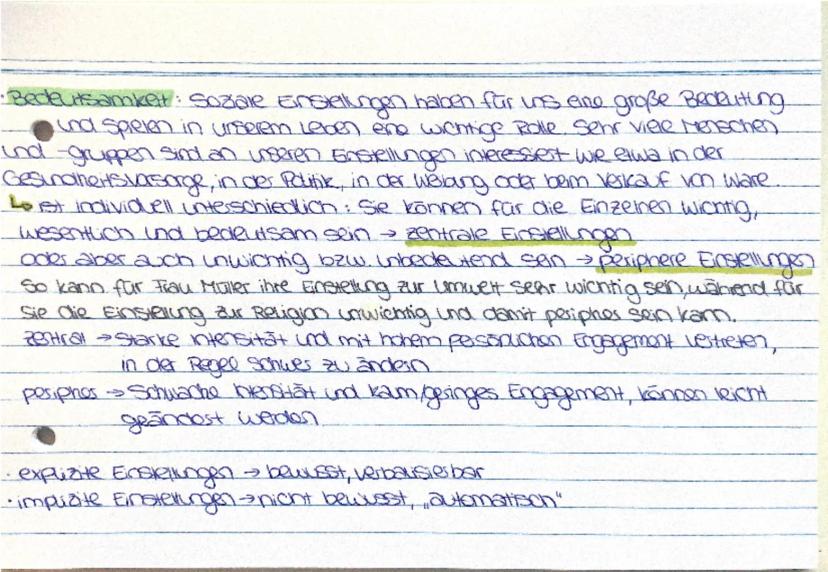 · Bedeutsamkeit: Soziale Einstellungen haben für uns eine große Bedeutung
und spielen in unserem Leben eine wichtige Rolle. Sehr viele Menschen
und -gruppen sind an unseren Einstellungen interessiert wie etwa in der
Gesundheitsvorsorge, in der Politik, in der Werbung oder beim Verkauf von Ware.
↳ ist individuell unterschiedlich: Sie können für die Einzelnen wichtig,
wesentlich und bedeutsam sein → zentrale Einstellungen
oder aber auch unwichtig bzw. unbedeutend sein → periphere Einstellungen
So kann für Frau Müller ihre Einstellung zur Umwelt sehr wichtig sein, während für
sie die Einstellung zur Religion unwichtig und damit peripher sein kann.
zentral → Starke Intensität und mit hohem persönlichen Engagement vertreten,
in der Regel schwer zu ändern
peripher → Schwache Intensität und kaum/geringes Engagement, können leicht
geändert werden
· explizite Einstellungen → bewusst, verbalisierbar
· implizite Einstellungen → nicht bewusst, „automatisch"